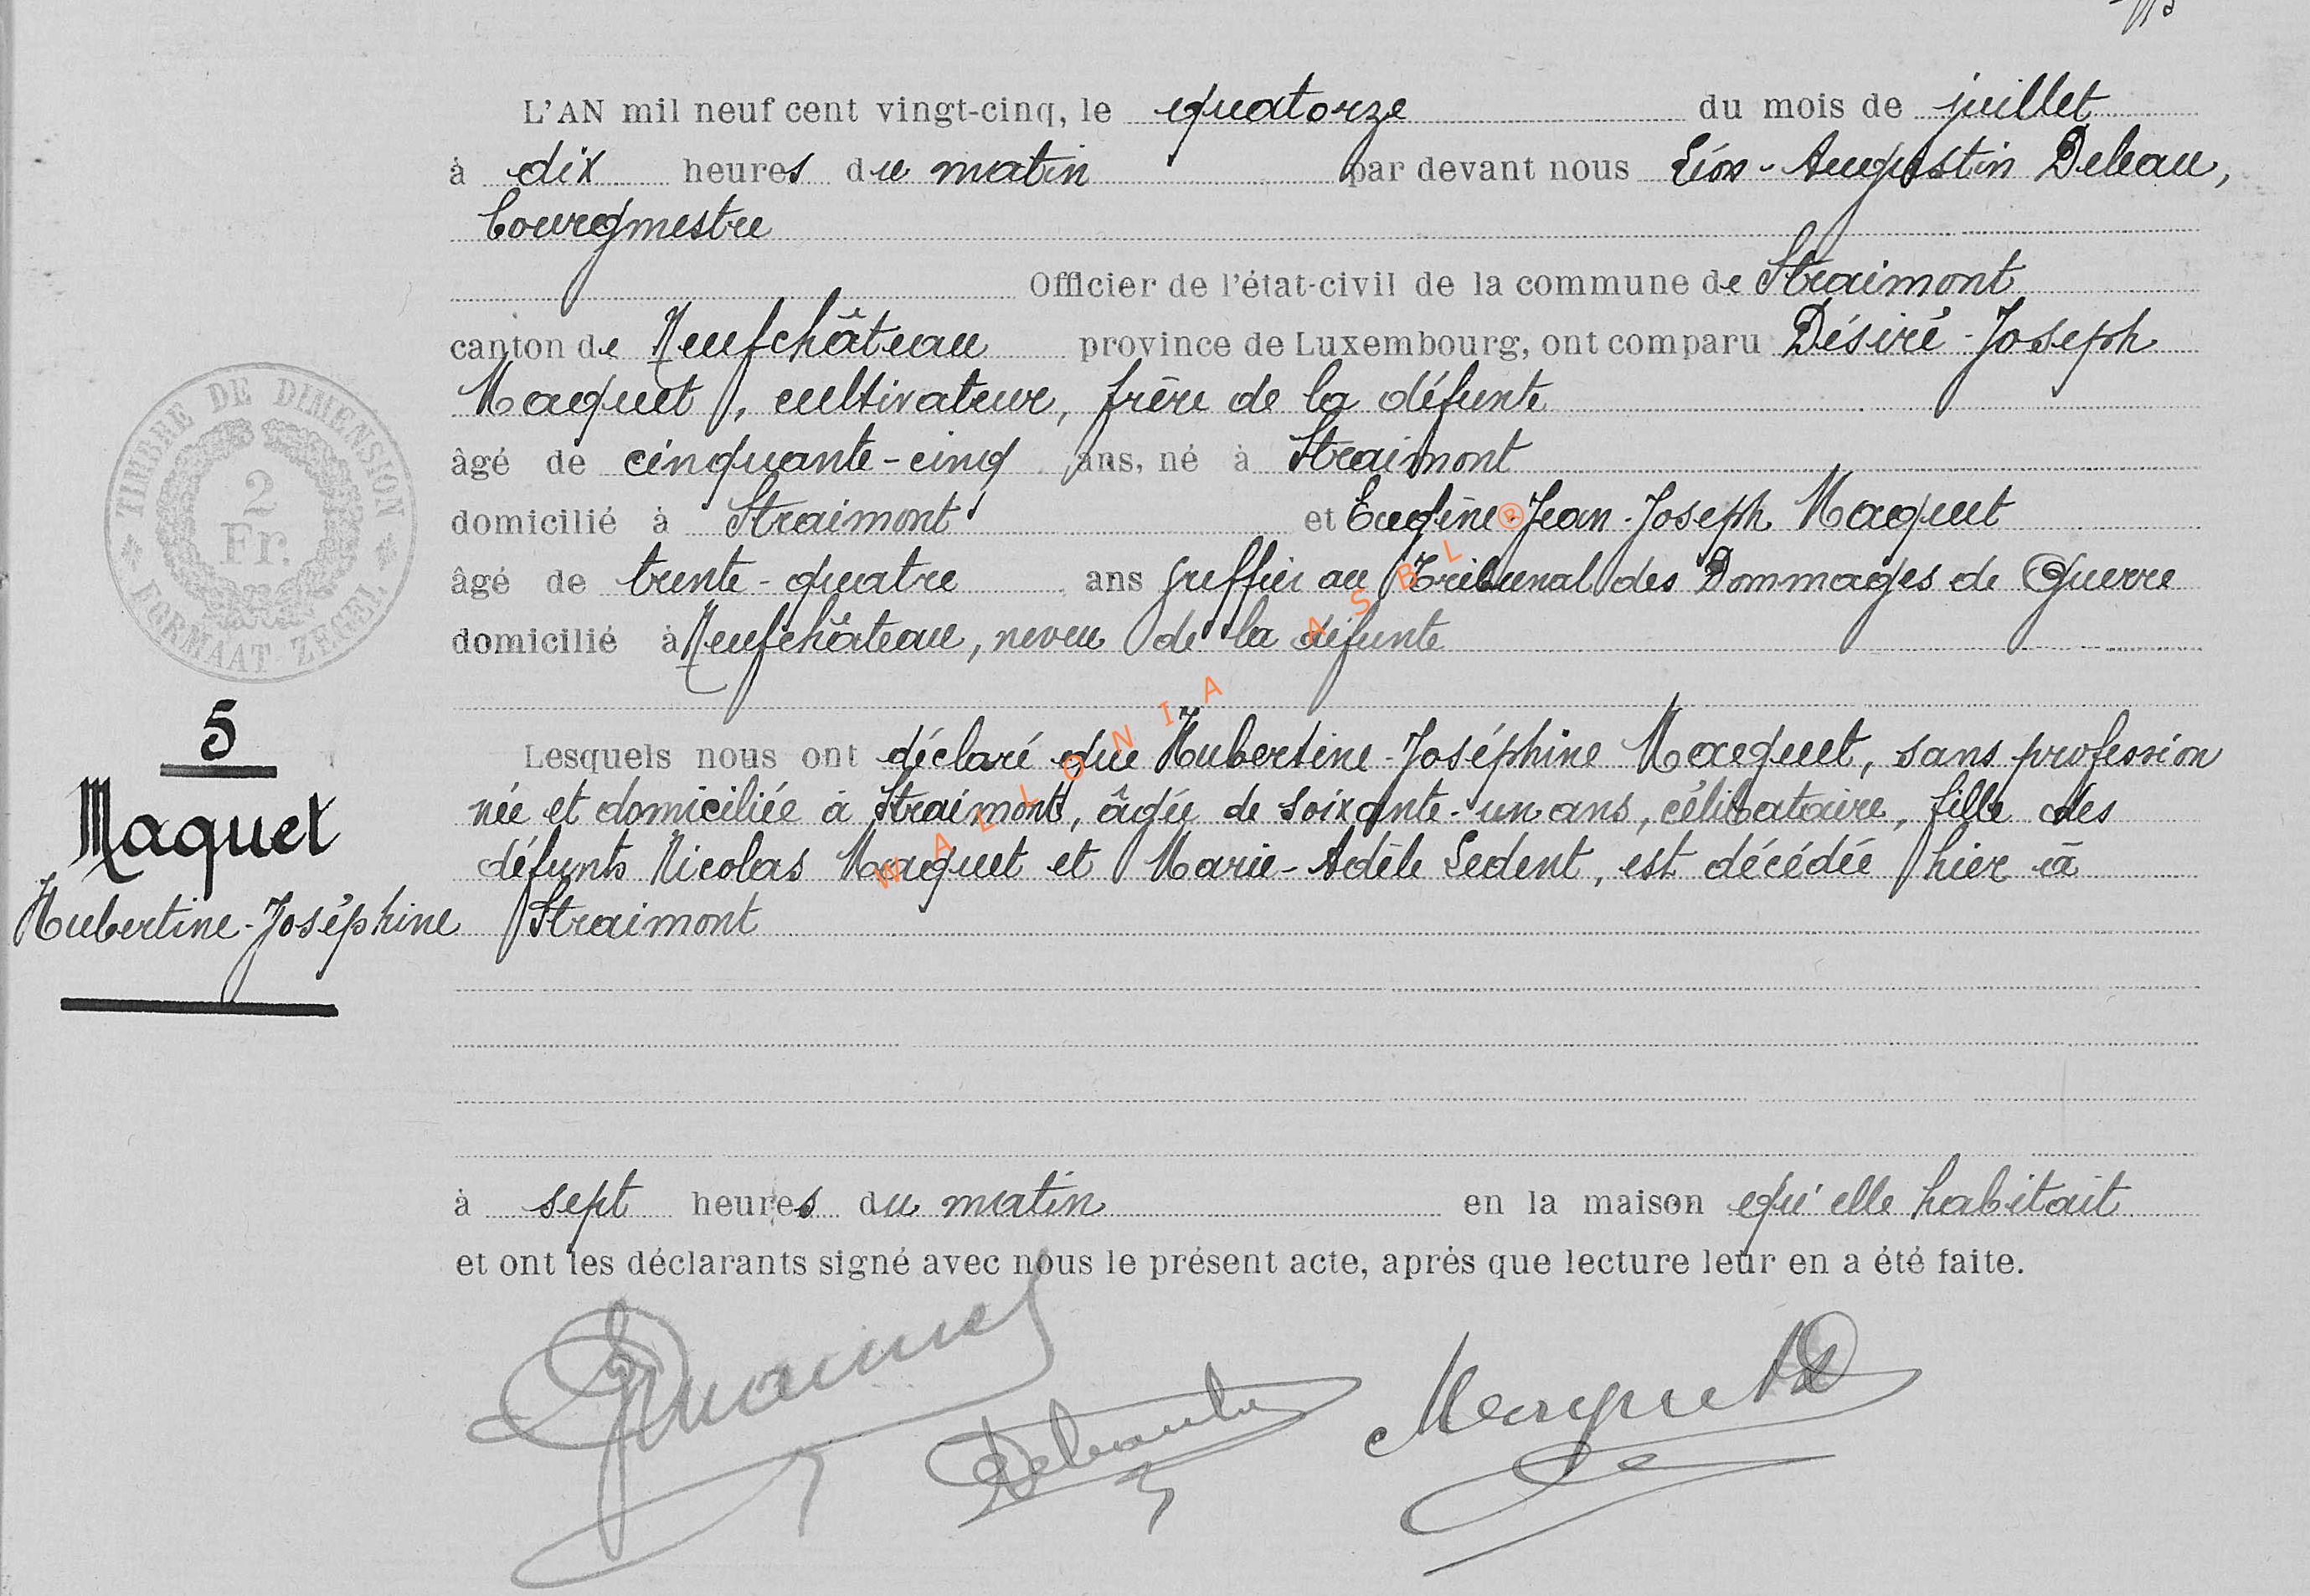 L'AN mil neuf cent vingt-cinq, le quatorze du mois de juillet
à dix heures du matin par devant nous Léon-Augustin Deleau,
bourgmestre
Officier de l'état-civil de la commune de Straimont
canton de Neufchâteau province de Luxembourg, ont comparu Désiré-Joseph
Maquet, cultivateur, frère de la défunte
âgé de cinquante-cinq ans, né à Straimont
domicilié à Straimont et Eugène-Jean-Joseph Maquet
âgé de trente-quatre ans greffier au Tribunal des Dommages de Guerre
domicilié à Neufchâteau, neveu de la défunte
TIMBRE DE DIMENSION
2
Fr.
FORMAAT ZEGEL
5
Maquet
Hubertine-Joséphine
Lesquels nous ont déclaré que Hubertine-Joséphine Maquet, sans profession
née et domiciliée à Straimont, âgée de soixante-un ans, célibataire, fille des
défunts Nicolas Maquet et Marie-Adèle Ledent, est décédée hier à
Straimont
à sept heures du matin en la maison qu'elle habitait
et ont les déclarants signé avec nous le présent acte, après que lecture leur en a été faite.
Maquet
WALLONIA ASBL ®